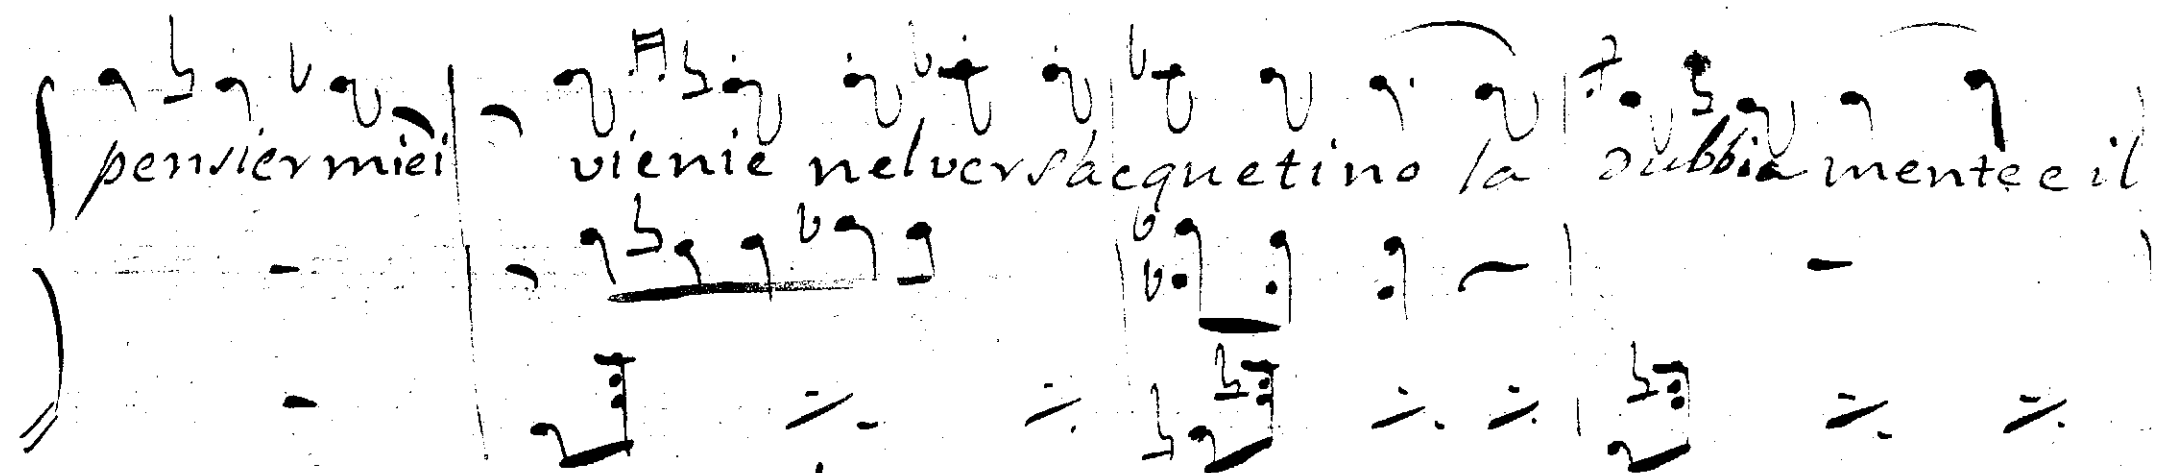 pensier miei vienie nel vers' acquetino la dubbia mente e il